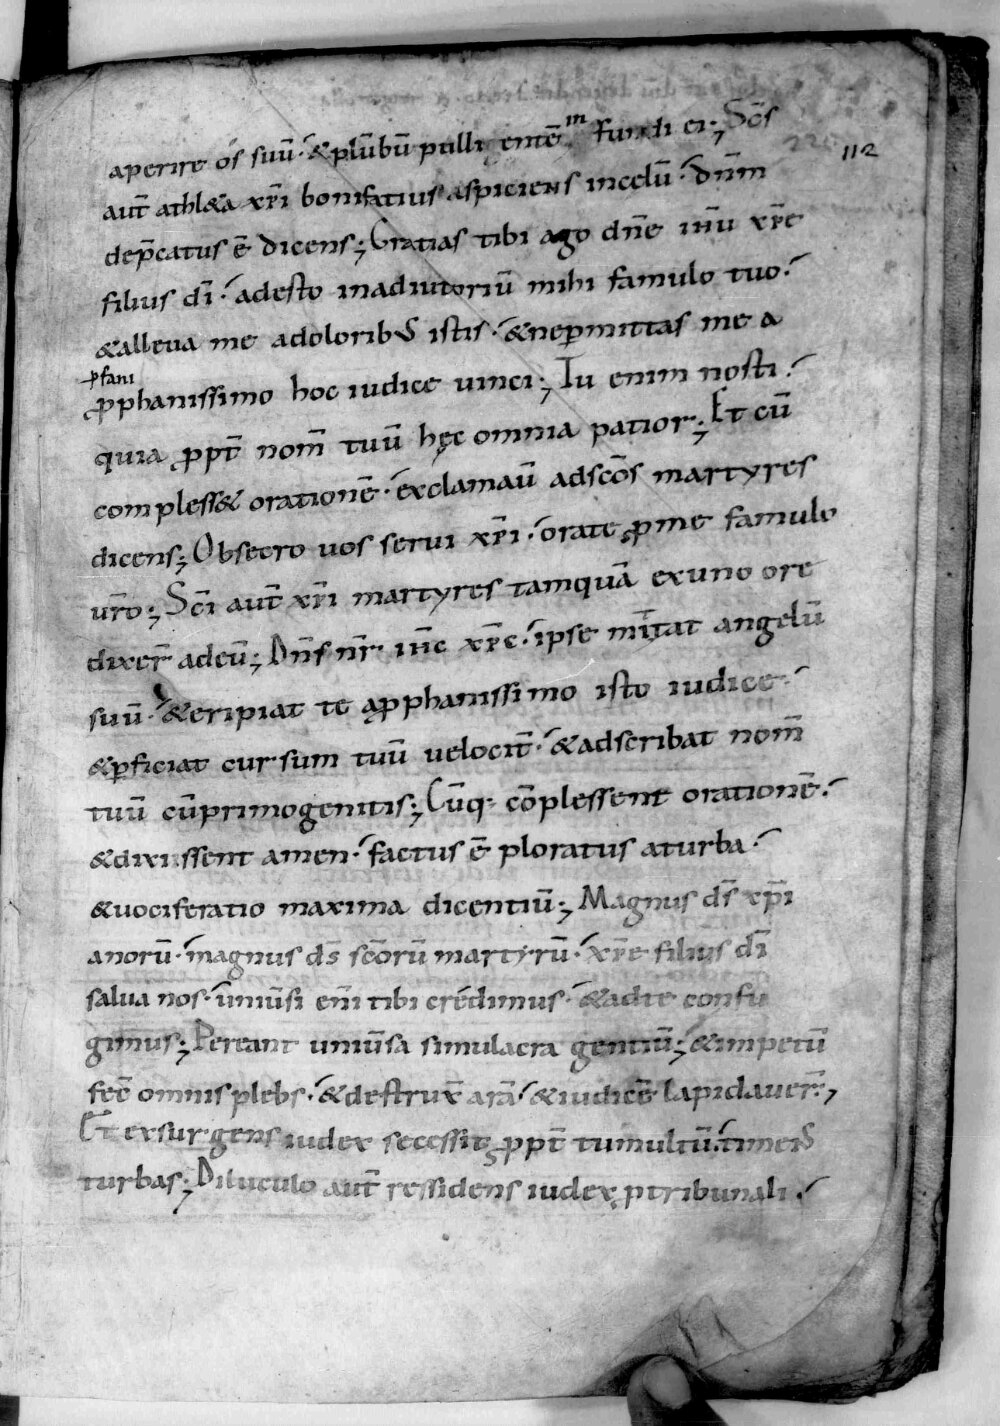 aperire os suū· &plūbū pulli entē m fundi ei; Sc̄s
112
aut̄ athl&a xp̄i bonifatius aspiciens incelū· dn̄m
dep̄catus ē dicens; Gratias tibi ago dn̄e ih̄u xp̄e
filius dī· adesto inadiutoriū mihi famulo tuo·
&alleua me adolorib; istis· &neꝑmittas me a
ꝓfani
ꝓphanissimo hoc iudice uinci; Tu enim nosti·
quia ꝓpt̄ nom̄ tuū hęc omnia patior; Et cū
compless& orationē· exclamaū adsc̄os martyres
dicens; Obsecro uos serui xp̄i· orate ꝓme famulo
ur̄o; Sc̄i aut̄ xp̄i martyres tamquā exuno ore
dixer̄ adeū; Dn̄s nr̄ ih̄c xp̄c· ipse mittat angelū
suū· &eripiat te aꝓphanissimo isto iudice·
&ꝑficiat cursum tuū uelocit̄· &adscribat nom̄
tuū cū primogenitis; Cūq; cōplessent orationē·
&dixissent amen· factus ē ploratus aturba·
&uociferatio maxima dicentiū; Magnus dS̄ xp̄i
anorū· magnus ds̄ sc̄orū martyrū· xp̄e filius dī
salua nos· uniūsi en̄i tibi credimus· &adte confu
gimus; Pereant uniūsa simulacra gentiū; &impetū
fec̄ omnis plebs· &destrux̄ arā· &iudicē lapidauer̄·,
Et exsurgens iudex secessit ꝓpt̄ tumultū· timens
turbas; Diluculo aut̄ ressidens iudex ꝓ tribunali·